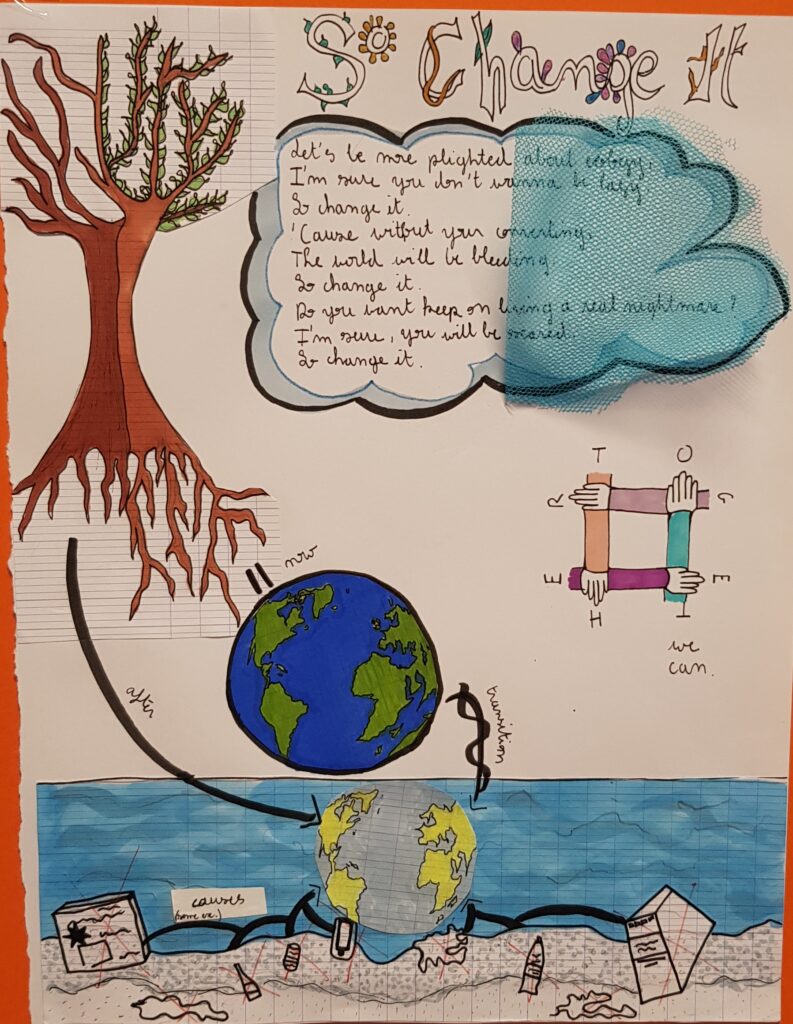 So Change It
Let's be more plighted about ecology,
I'm sure you don't wanna be lazy
So change it.
'Cause without your converting,
The world will be bleeding.
So change it.
Do you want keep on living a real nightmare?
I'm sure, you will be scared.
So change it.
T O
R G
E E
H T
we
can.
now
after
transition
causes